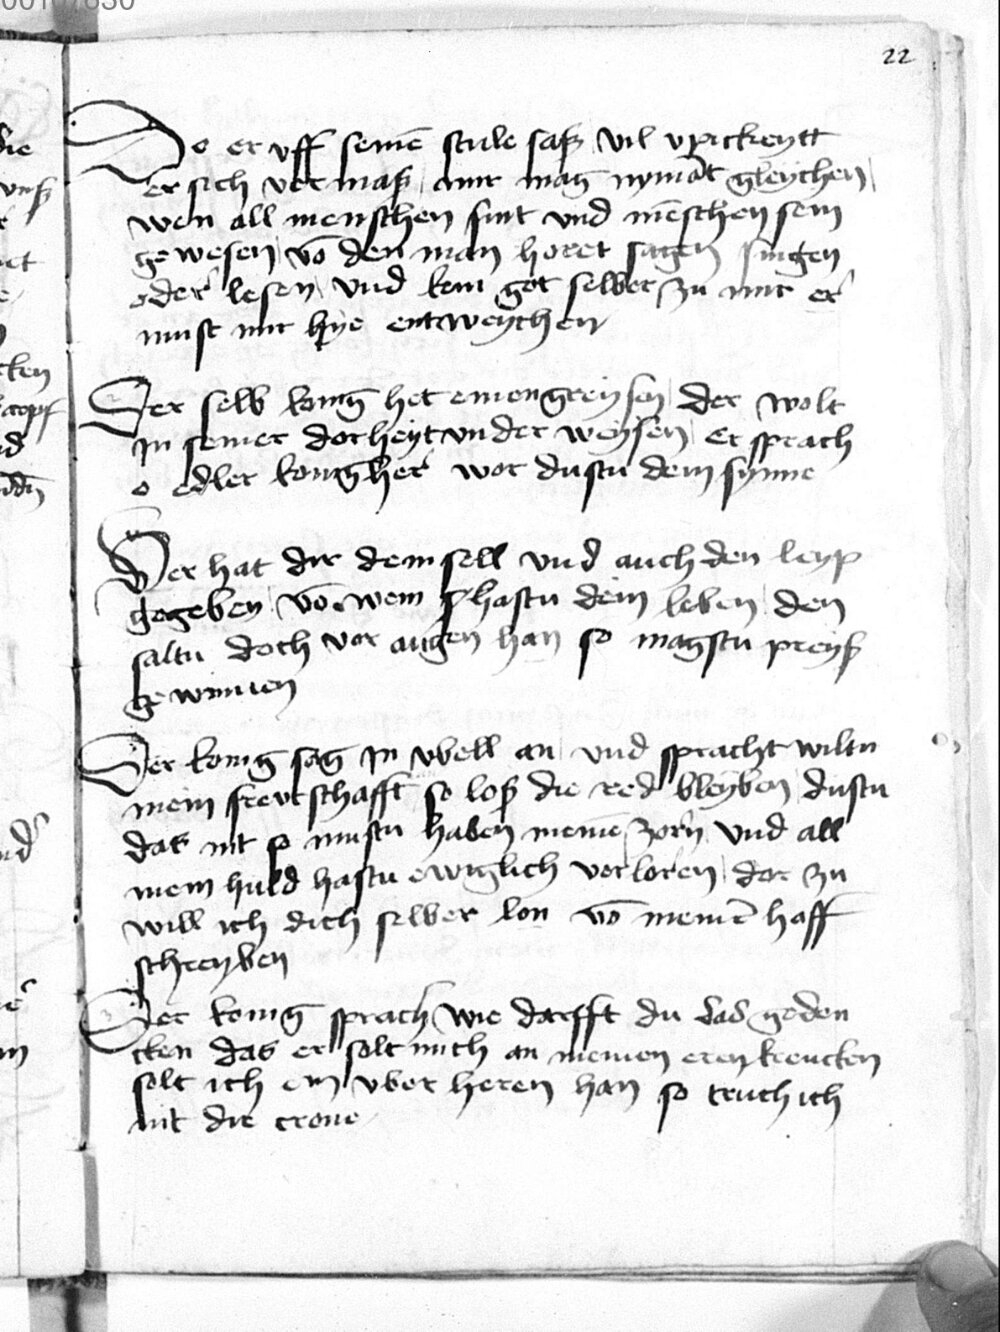 00107830
22
Do er vff seinē stule saß vil vppickeytt
er sich vermaß mir mag nymāt gleychen
wen all menschen sint vnd mēschen sein
gewesen vō den man horet sagen singen
oder lesen vnd kem got selber zu mir er
must mir hye entweychen
Der selb konig het einen greysen der wolt
in seiner dorheyt vnder weysen er sprach
o edler konig her wor dustu dein synne
Wer hat dir dein sell vnd auch den leyp
gegeben vō wem hastu dein leben den
saltu doch vor augen han so magstu preyß
gewinnen
Der konig sag in vbell an vnd spracht wiltu
mein frevtschafft so loß die red bleyben dustu
das nit so mustu haben meinē zorn vnd all
mein huld hastu ewiglich verloren dar zu
will ich dich selber lon vō meinē haff
schreyben
Der konig sprach wie darfft du das geden
cken das er solt mich an meinen eren krencken
solt ich ein vber heren han so truch ich
nit die crone